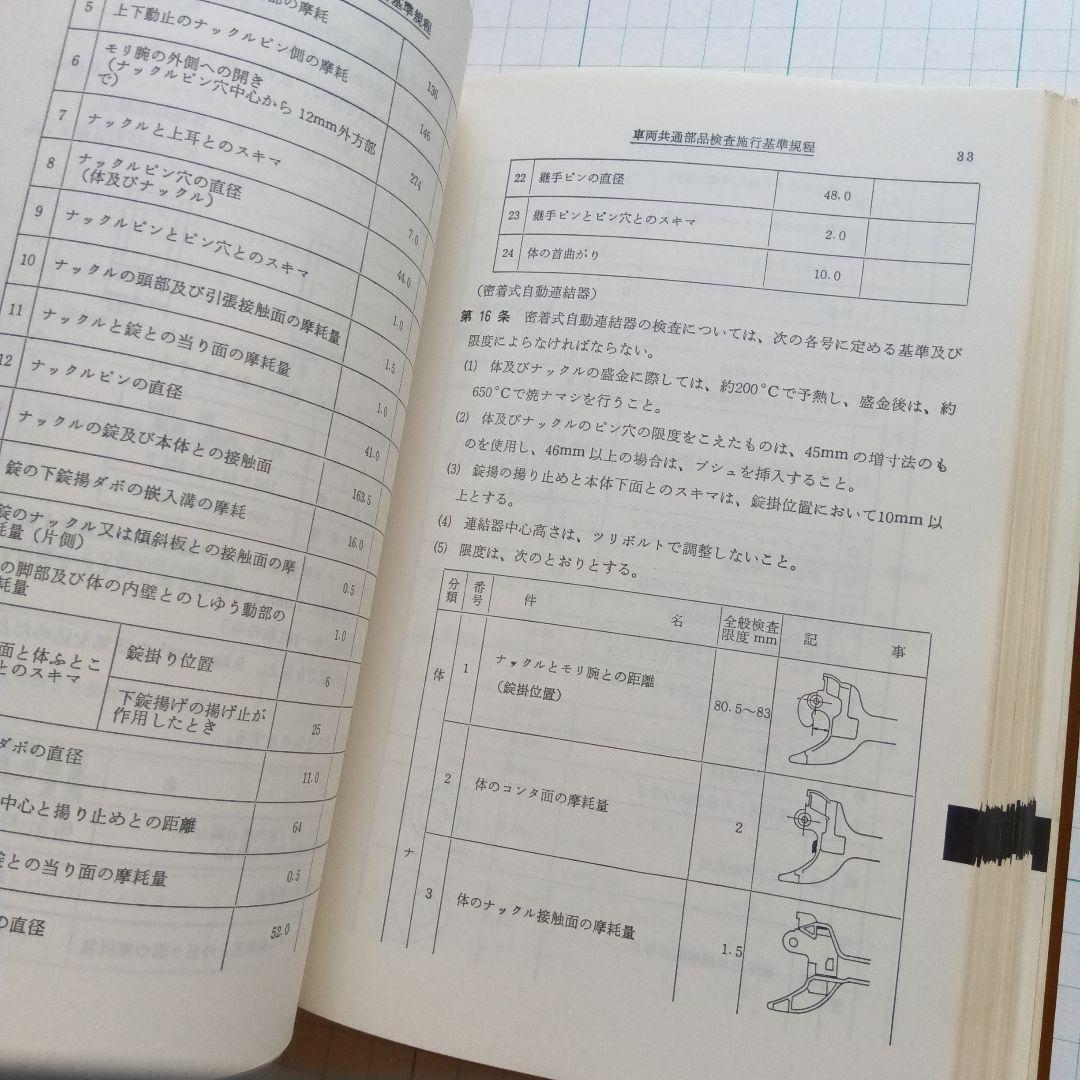 基準規程
部の摩耗
5 上下動止のナックルピン側の摩耗 136
6 モリ腕の外側への開き
(ナックルピン穴中心から 12mm外方部
で) 146
7 ナックルと上耳とのスキマ 274
8 ナックルピン穴の直径
(体及びナックル) 7.0
9 ナックルピンとピン穴とのスキマ 44.0
10 ナックルの頭部及び引張接触面の摩耗量 1.0
11 ナックルと錠との当り面の摩耗量 1.5
12 ナックルピンの直径 1.0
ナックルの錠及び本体との接触面 41.0
錠の下錠揚ダボの嵌入溝の摩耗 163.5
錠のナックル又は傾斜板との接触面の摩
耗量(片側) 16.0
の脚部及び体の内壁とのしゆう動部の
耗量 0.5
1.0
面と体ふとこ
とのスキマ
錠掛り位置 6
下錠揚げの揚げ止が
作用したとき 25
ダボの直径 11.0
中心と揚り止めとの距離 64
錠との当り面の摩耗量 0.5
の直径 52.0
車両共通部品検査施行基準規程
33
22 継手ピンの直径 48.0
23 継手ピンとピン穴とのスキマ 2.0
24 体の首曲がり 10.0
(密着式自動連結器)
第16条 密着式自動連結器の検査については、次の各号に定める基準及び
限度によらなければならない。
(1) 体及びナックルの盛金に際しては、約200°Cで予熱し、盛金後は、約
650°Cで焼ナマシを行うこと。
(2) 体及びナックルのピン穴の限度をこえたものは、45mmの増寸法のも
のを使用し、46mm以上の場合は、ブシュを挿入すること。
(3) 錠揚の揚り止めと本体下面とのスキマは、錠掛位置において10mm以
上とする。
(4) 連結器中心高さは、ツリボルトで調整しないこと。
(5) 限度は、次のとおりとする。
分類 番号 件 名 全般検査限度 mm 記 事
体 1 ナックルとモリ腕との距離
(錠掛位置) 80.5〜83
2 体のコンタ面の摩耗量 2
ナ 3 体のナックル接触面の摩耗量 1.5